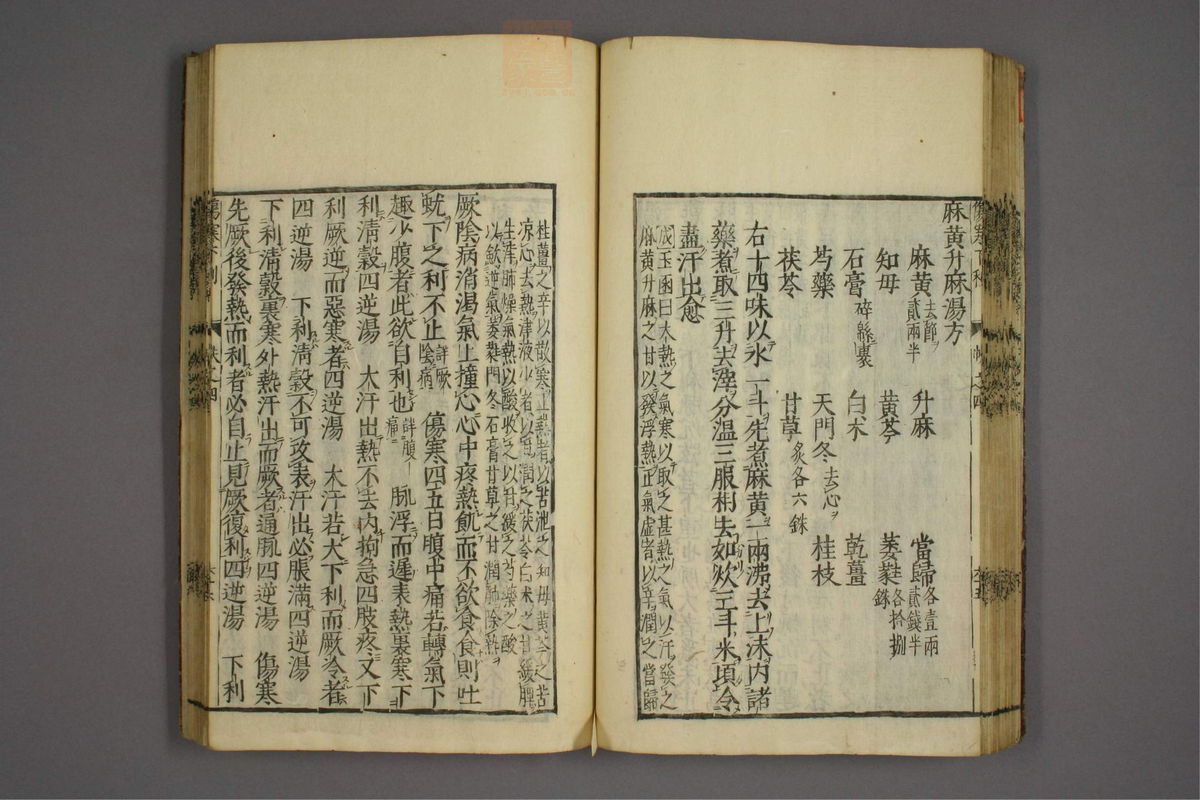 麻黃升麻湯方
麻黃去節貳兩半 升麻 當歸各壹兩貳錢半
知母 黃芩 萎蕤各拾捌銖
石膏碎綿裹 白朮 乾薑
芍藥 天門冬去心 桂枝
茯苓 甘草炙各六銖
右十四味以水一斗先煮麻黃一兩沸去上沫內諸
藥煮取三升去滓分溫三服相去如炊三斗米頃令
盡汗出愈
成玉函曰大熱之氣寒以取之甚熱之氣以汗發之
麻黃升麻之甘以發浮熱正氣虛者以辛潤之當歸
桂薑之辛以散寒上熱者以苦泄之知母黃芩之苦
凉心去熱津液少者以甘潤之茯苓白朮之甘緩脾
生津肺燥氣熱以酸收之以甘緩之芍藥之酸
以斂逆氣萎蕤門冬石膏甘草之甘潤肺除熱
厥陰病消渴氣上撞心心中疼熱飢而不欲食食則吐
蚘下之利不止詳厥陰病 傷寒四五日腹中痛若轉氣下
趣少腹者此欲自利也詳腹痛 脉浮而遲表熱裏寒下
利清穀四逆湯 大汗出熱不去內拘急四肢疼又下
利厥逆而惡寒者四逆湯 大汗若大下利而厥冷者
四逆湯 下利清穀不可攻表汗出必脹滿四逆湯
下利清穀裏寒外熱汗出而厥者通脉四逆湯 傷寒
先厥後發熱而利者必自止見厥復利四逆湯 下利
傷寒下利